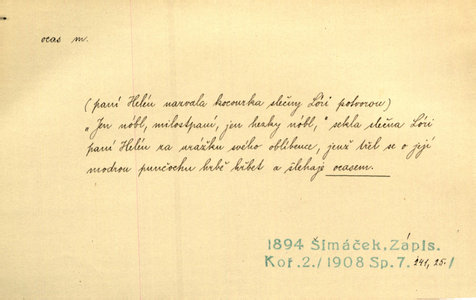 ocas m.
(paní Helén nazvala kocourka slečny Lóri potvorou)
„Jen nóbl, milostpaní, jen hezky nóbl," řekla slečna Lóri
paní Helén za urážku svého oblíbence, jenž třel se o její
modrou punčochu hrbě hřbet a šlehaje ocasem.
1894 Šimáček, Zápis.
Koř. 2./1908 Sp. 7. 241, 25./